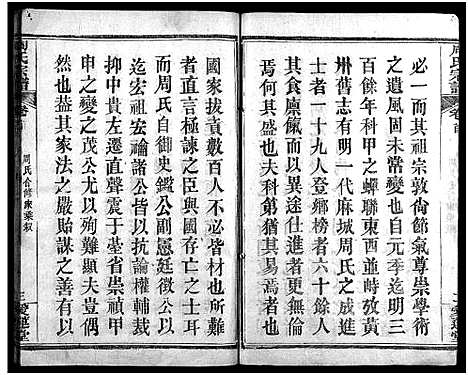 周氏宗譜 卷首
二 愛蓮堂
必一而其祖宗敦尚節氣尊崇學術
之遺風固未常變也自元季迄明三
百餘年科甲之蟬聯東西並峙黃
州舊志有明一代麻城周氏之成進
士者一十九人登鄉榜者六十餘人
其食廩餼而以異途仕進者更
焉何其盛與然科第猶其易焉者也
國家拔貢數百人不必皆材以
者直言極諫之臣與國存亡之士耳
而周氏自御史鑑公副憲廷徵公以
迄宏祖宏禴諸公皆以抗論權輔裁
抑中貴左遷直聲震于臺省崇禎甲
申之變之茂公尤以難顯夫豈偶
然也蓋其家法之嚴貽謀之善有
周氏宗譜 卷首
周氏合修家乘叙
三 愛蓮堂